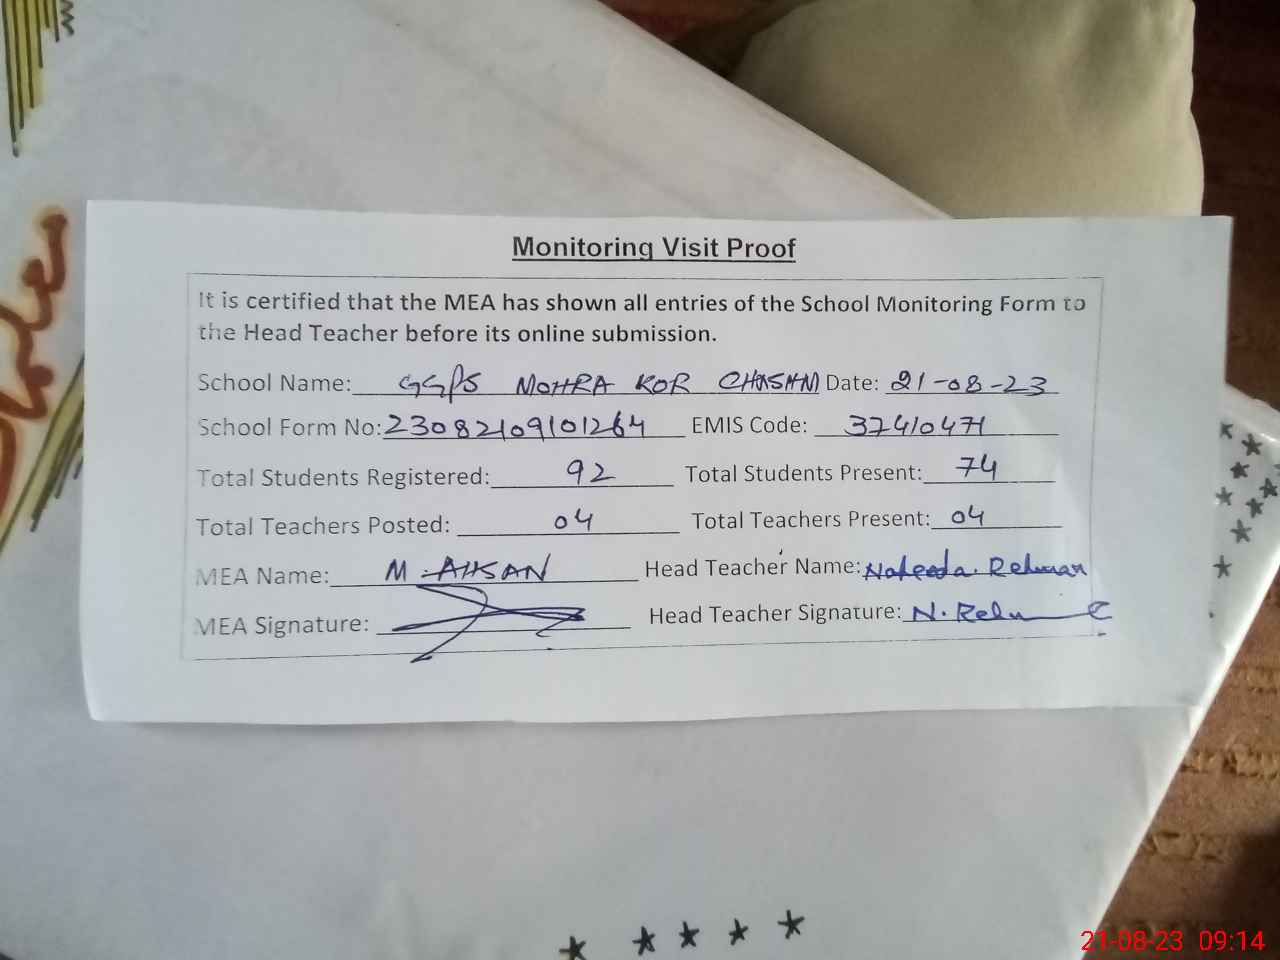 Monitoring Visit Proof
It is certified that the MEA has shown all entries of the School Monitoring Form to
the Head Teacher before its online submission.
School Name: GGPS MOHRA KOR CHASHM Date: 21-08-23
School Form No: 23082109101264 EMIS Code: 37410471
Total Students Registered: 92 Total Students Present: 74
Total Teachers Posted: 04 Total Teachers Present: 04
MEA Name: M. AHSAN Head Teacher Name: Naheeda. Rehman
MEA Signature: Head Teacher Signature: N. Rehm
21-08-23 09:14